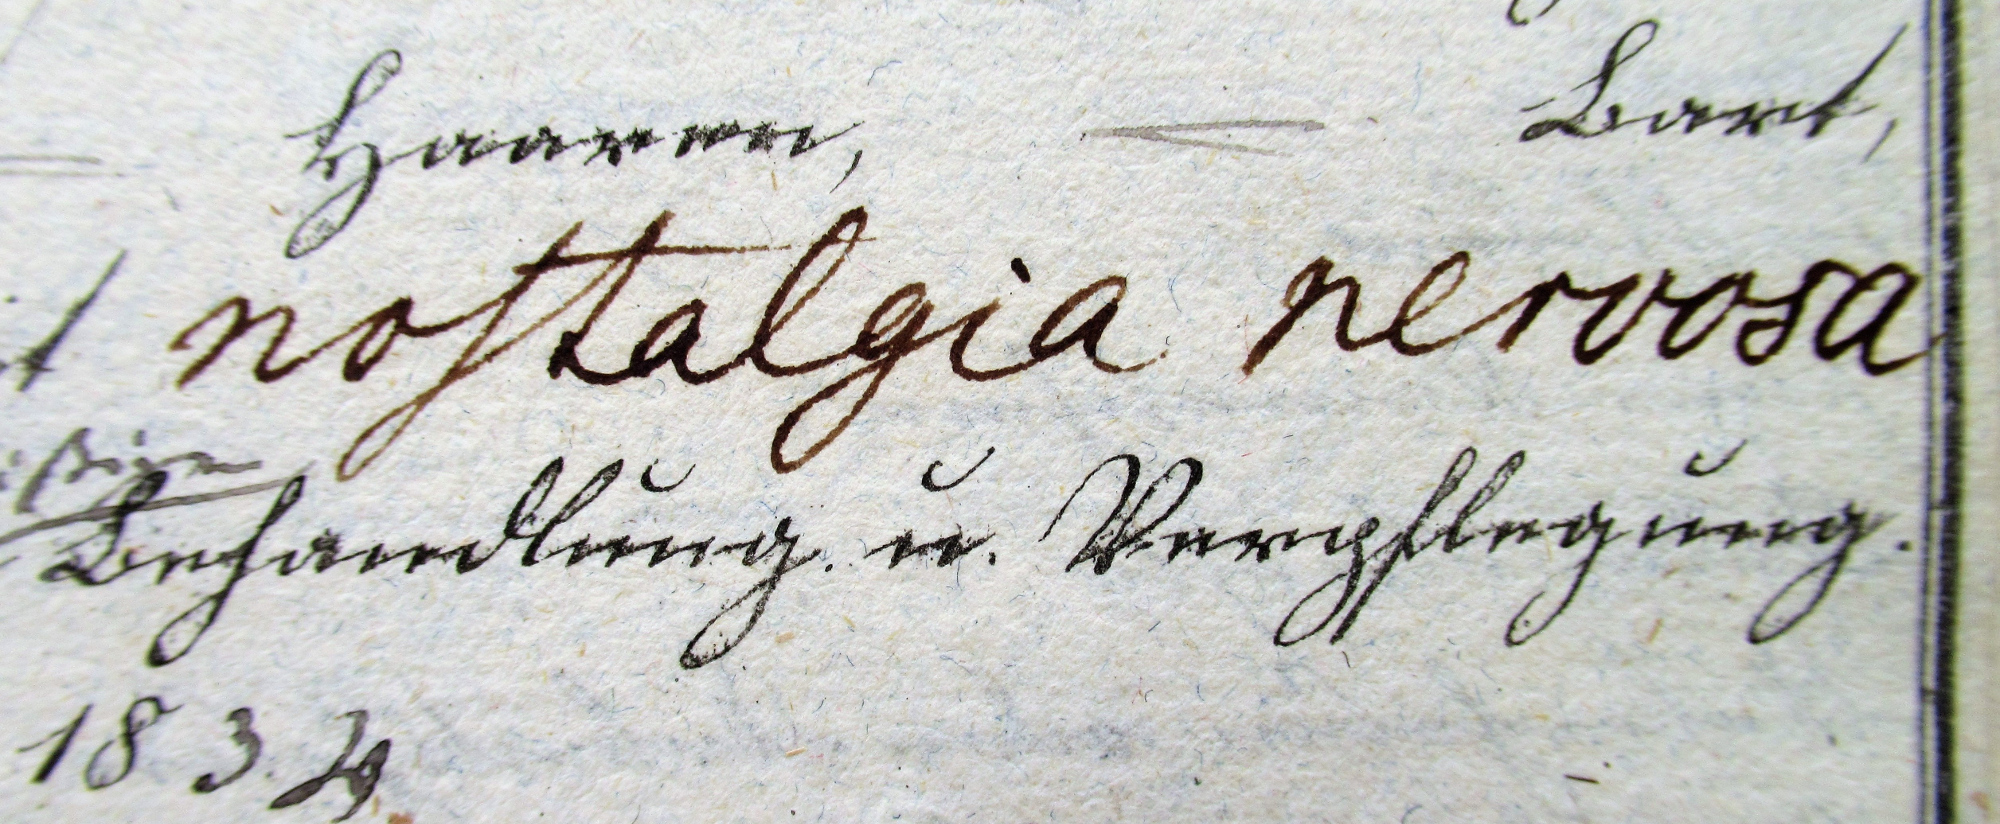 Haaren, — Bart,
nostalgia nervosa
Behandlung u. Verpflegung.
183